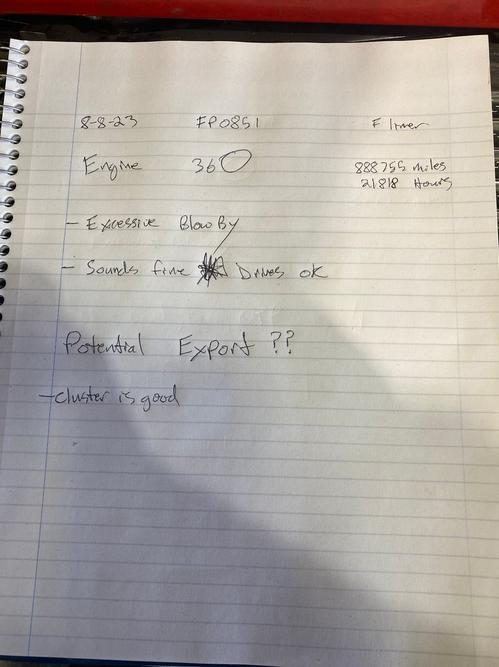 8-8-23 FP0851 F liner
Engine 360 888755 miles
21818 Hours
- Excessive Blow By
- Sounds fine Drives ok
Potential Export ??
- cluster is good